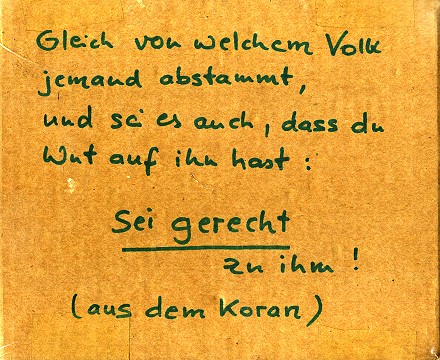 Gleich von welchem Volk
jemand abstammt,
und sei es auch, dass du
Wut auf ihn hast :
Sei gerecht
zu ihm !
(aus dem Koran)